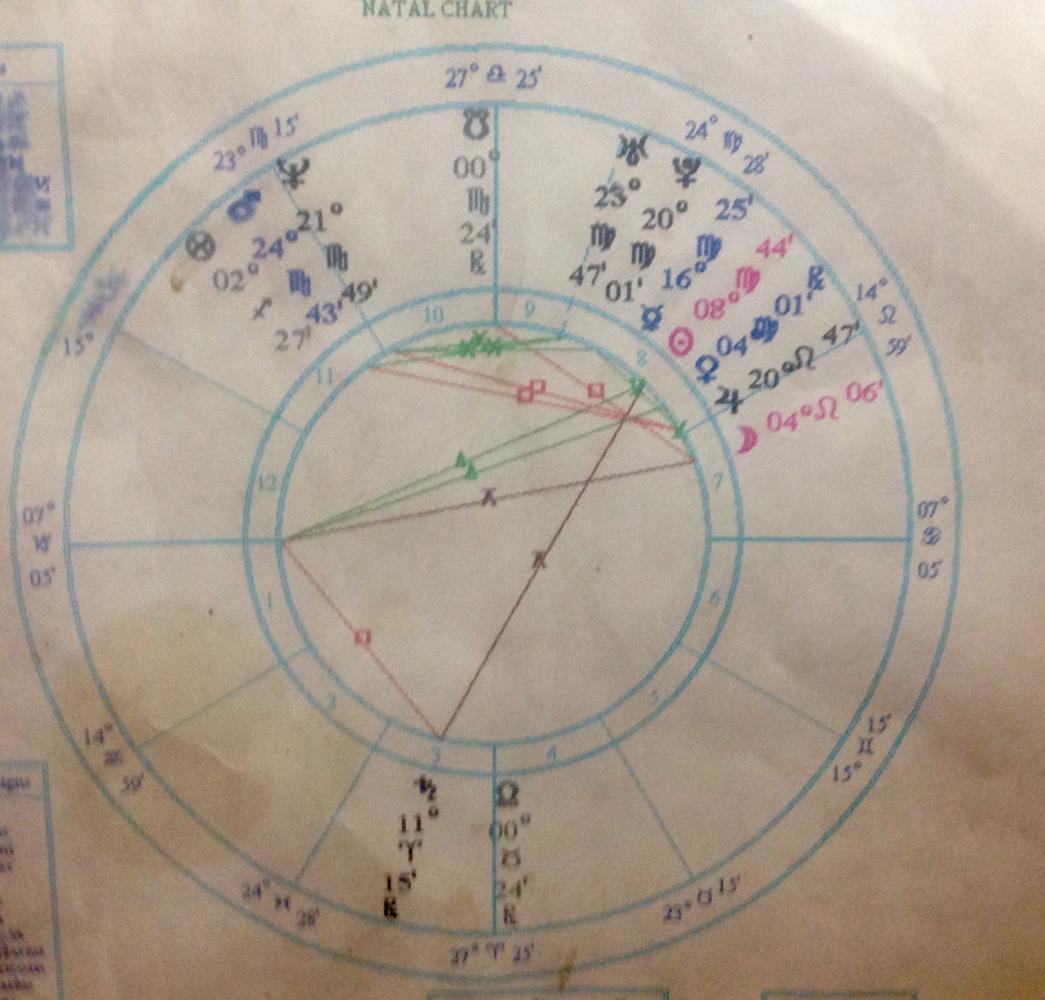 NATAL CHART
27° ♎ 25'
24° ♍ 28'
14° ♌ 59'
07° ♋ 05'
15' ♊ 15°
23° ♉ 15'
27° ♈ 25'
24° ♓ 28'
14° ♒ 59'
07° ♑ 05'
15°
23° ♏ 15'
☋ 00° ♏ 24' ℞
♅ 23° ♍ 47'
20° ♍ 01'
☿ 16° ♍ 25'
☉ 08° ♍ 44'
♀ 04 ♍ 01' ℞
♃ 20° ♌ 47'
☽ 04° ♌ 06'
21° ♏ 49'
♂ 24° ♏ 43'
⊗ 02° ♐ 27'
♄ 11° ♈ 15' ℞
☊ 00° ♉ 24' ℞
10
9
8
7
6
5
4
3
2
1
12
11